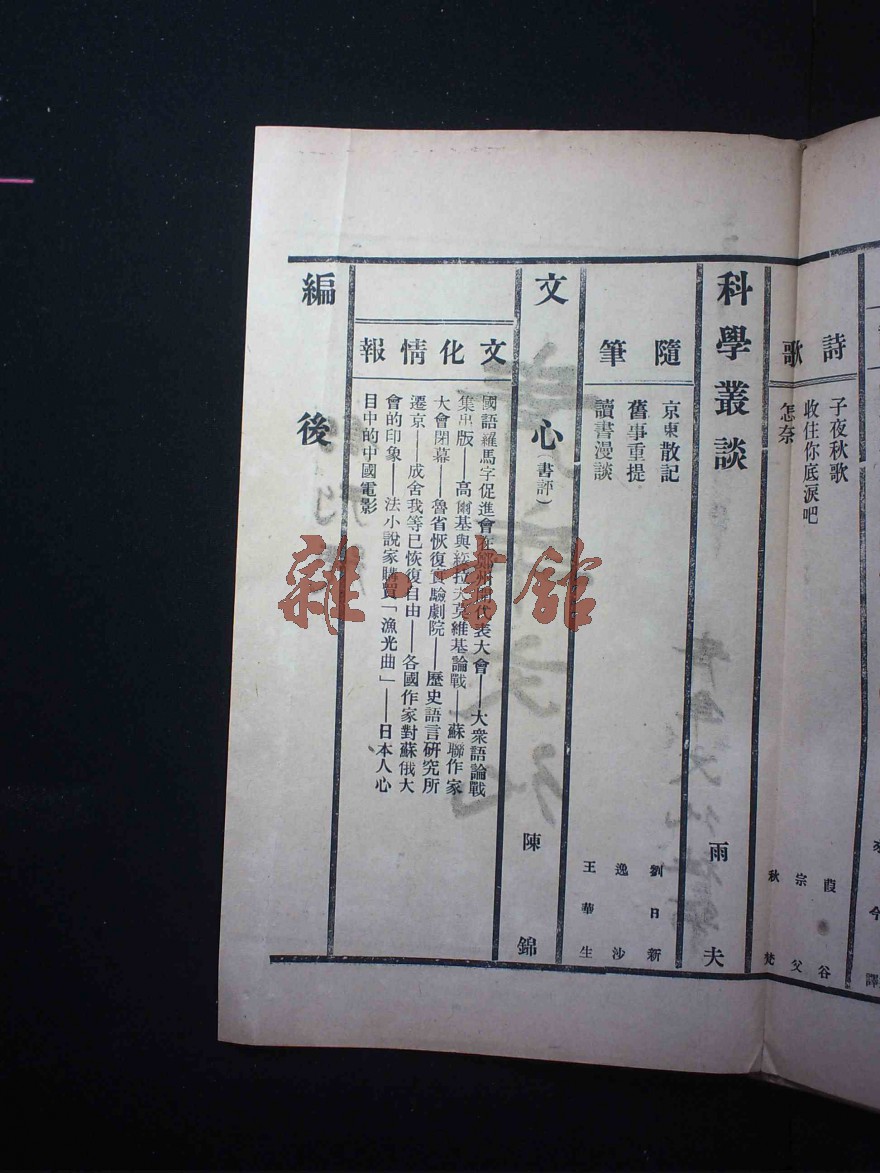 詩歌
子夜秋歌 霞谷
收住你底淚吧 宗父
怎奈 秋梵
科學叢談 雨夫
隨筆
京東散記 劉日新
舊事重提 逸沙
讀書漫談 王華生
文心(書評) 陳錦
文化情報
國語羅馬字促進會在鄭州開代表大會——大衆語論戰
集出版——高爾基與綏拉夫莫維基論戰——蘇聯作家
大會閉幕——魯省恢復實驗劇院——歷史語言研究所
遷京——成舍我等已恢復自由——各國作家對蘇俄大
會的印象——法小說家購買「漁光曲」——日本人心
目中的中國電影
編後
雜·書館